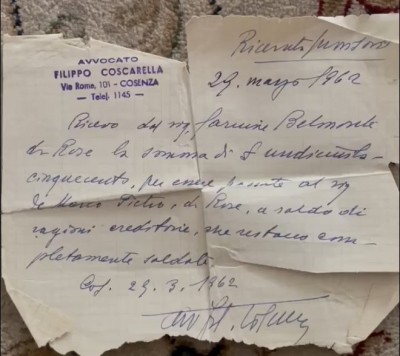 AVVOCATO
FILIPPO COSCARELLA
Via Roma, 101 - COSENZA
— Telef. 1145 —
Ricevuta
29. marzo 1962
Ricevo dal sig. Carmine Belmonte
da Rose la somma di £ undicimila
cinquecento, per essere al sig
De Marco Pietro, da Rose, a saldo di
ragioni creditorie, che restano com-
pletamente saldate
Cos. 29. 3. 1962